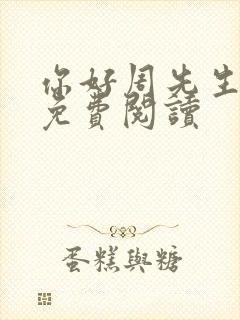 你好周先生
免費閱讀
蛋糕與糖